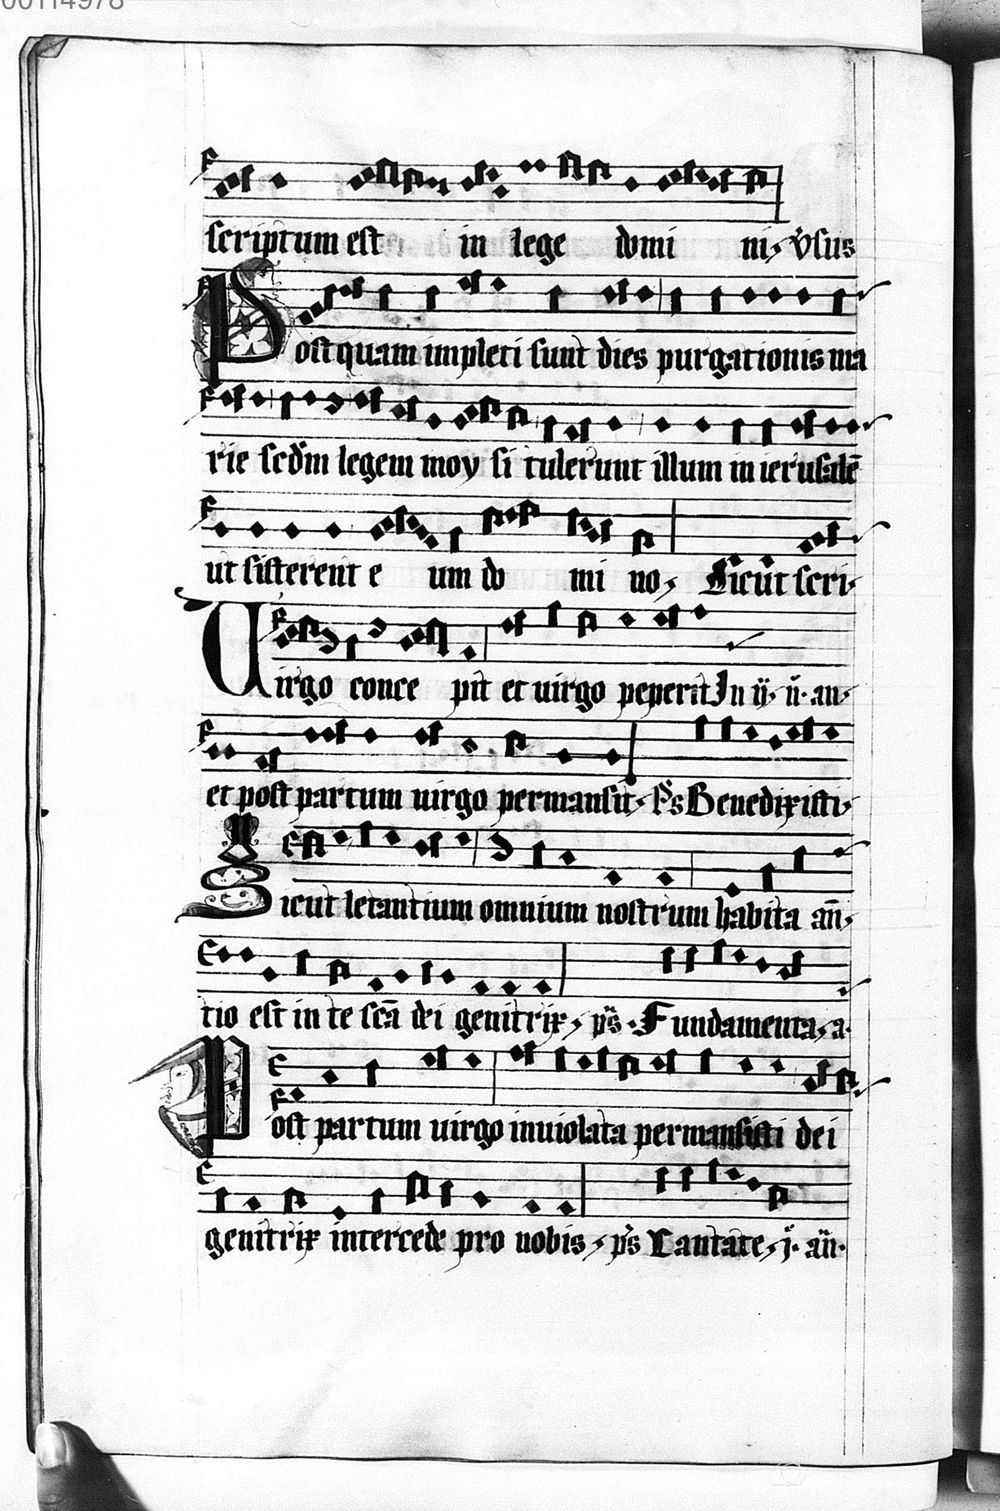 00114978
scriptum est in lege domi ni, v̉sus
Postquam impleti sunt dies purgationis ma
rie scd̄m legem moy si tulerunt illum in ierusalē
ut sisterent e um do mi no, Sicut scri-
Virgo conce pit et uirgo peperit In ij. ñ. an-
et post partum uirgo permansit, p̄s Benedixisti-
Sicut letantium omnium nostrum habita an̄-
tio est in te scā dei genitrix, p̄s. Fundamenta, a-
Post partum uirgo inuiolata permansisti dei
genitrix intercede pro nobis, p̄s Cantate, j. an̄.